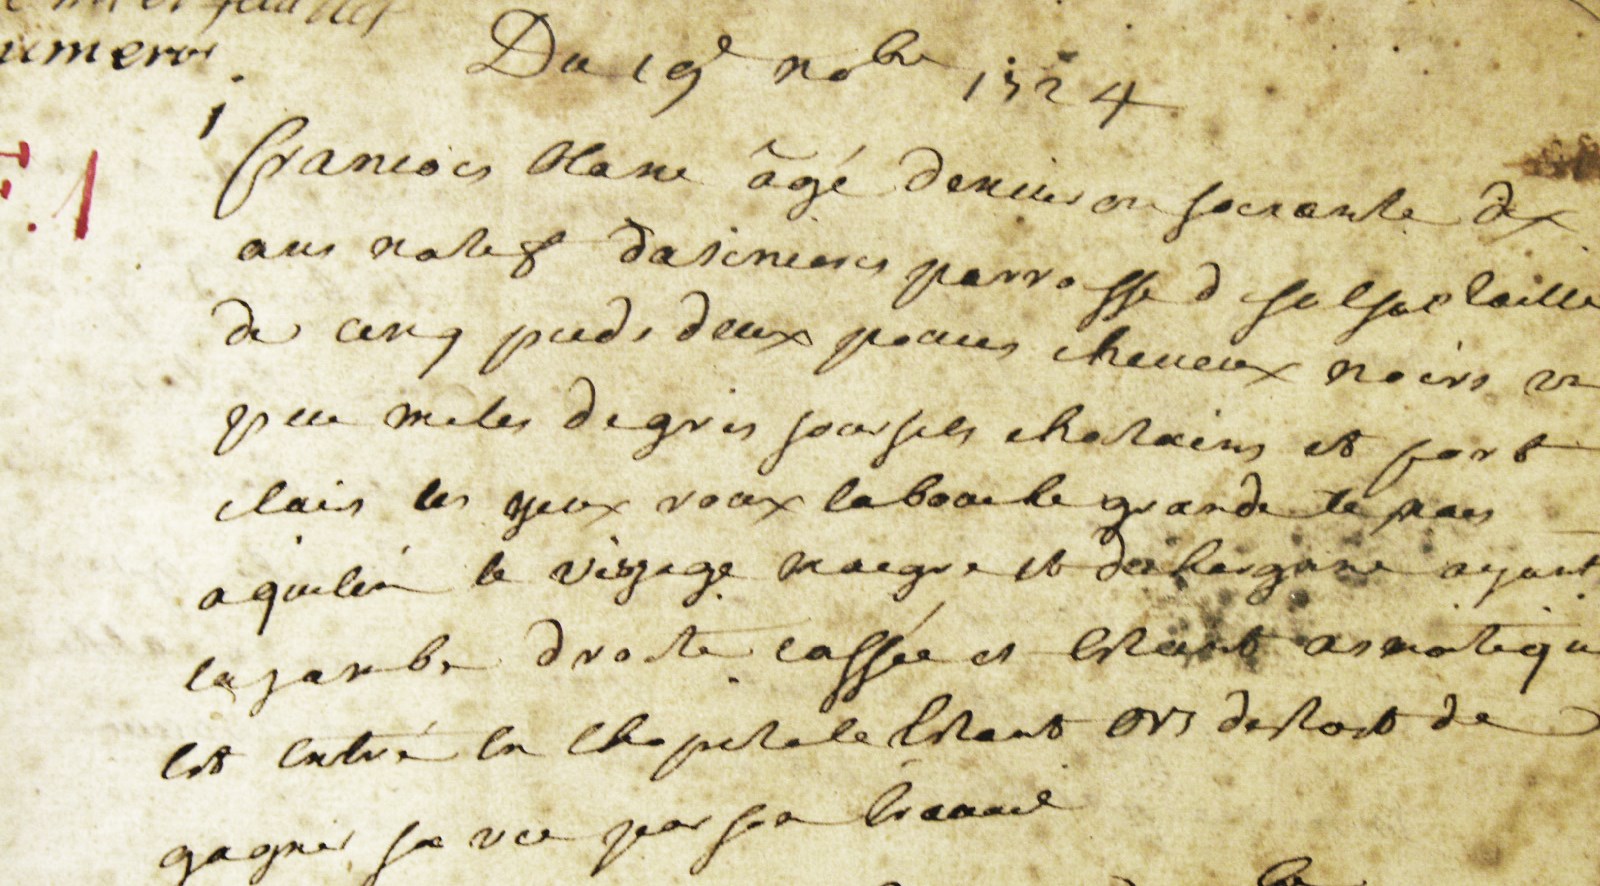 numero
Du 19e nobre 1724
1 francois blanc âgé denuiron soixante dix
ans natif parroisse d taille
de cinq pieds deux pouces cheueux noirs vn
peu meles de gris soursils chatains et fort
clairs les yeux roux la bouche grande le nais
aquilin le visage maigre et dechargnne ayant
la jambe droite cassée et estant asmatique
est entré en lhopital estant ors destat de
gagner sa vie par son trauail
1